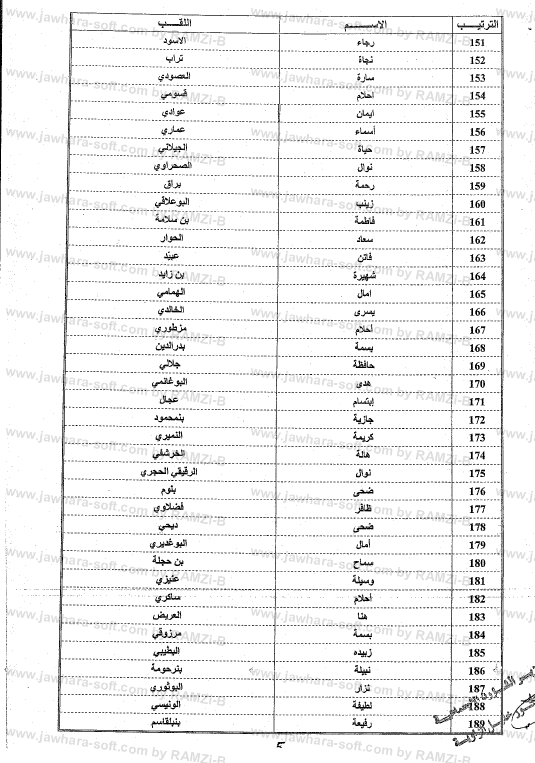 الترتيب الاسم اللقب
151 رجاء الاسود
152 نجاة تراب
153 سارة العصودي
154 احلام قسومي
155 ايمان عوادي
156 أسماء عماري
157 حياة الجيلاني
158 نوال الصحراوي
159 رحمة براق
160 زينب البوعلاقي
161 فاطمة بن سلامة
162 سعاد الحوار
163 فاتن عبيد
164 شهيرة بن زايد
165 امال الهمامي
166 يسرى الخالدي
167 أحلام مزطوري
168 بسمة بدرالدين
169 حافظة جلالي
170 هدى البوغانمي
171 إبتسام عجال
172 جازية بنمحمود
173 كريمة النميري
174 هالة الخرشفي
175 نوال الرقيقي الحجري
176 ضحى بلوم
177 ظافر فضلاوي
178 ضحى ديحي
179 أمال البوغديري
180 سماح بن حجلة
181 وسيلة عنيزي
182 أحلام ساكري
183 هنا العريض
184 بسمة مرزوقي
185 زبيده البطيبي
186 نبيلة بنرحومة
187 نزار البوثوري
188 لطيفة الونيسي
189 رفيعة بنبلقاسم
www.jawhara-soft.com by RAMZi-B